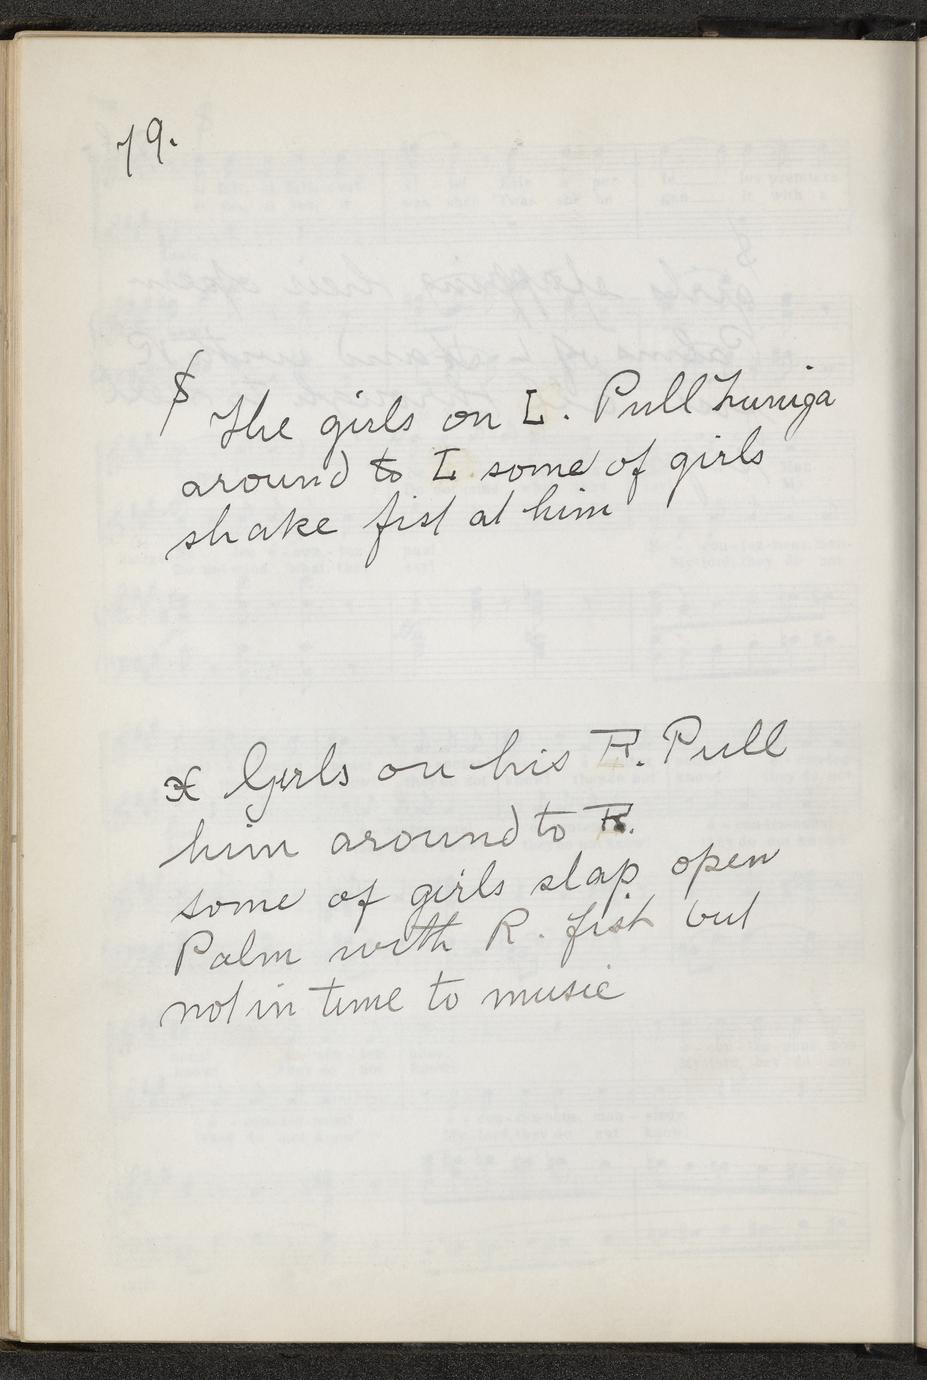 79.
$ The girls on L. Pull Zuniga
around to L some of girls
shake fist at him
x Girls on his R. Pull
him around to R.
some of girls slap open
Palm with R. fist but
not in time to music